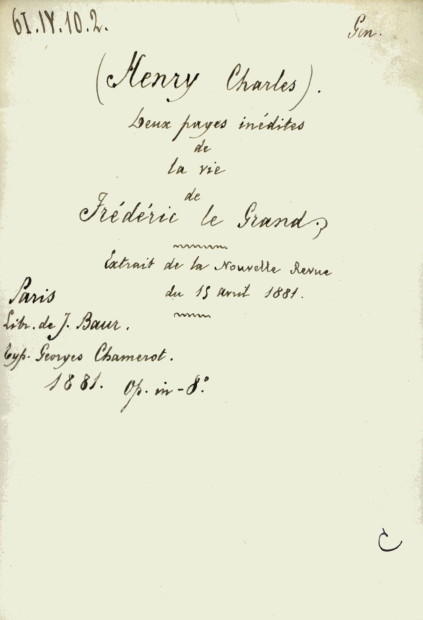 61.IV.10.2.
Gen.
(Henry Charles).
Deux pages inédites
de
la vie
de
Frédéric le Grand;
Extrait de la Nouvelle Revue
du 15 avril 1881.
Paris
Libr. de J. Baur.
Typ. Georges Chamerot.
1881. Op. in-8°